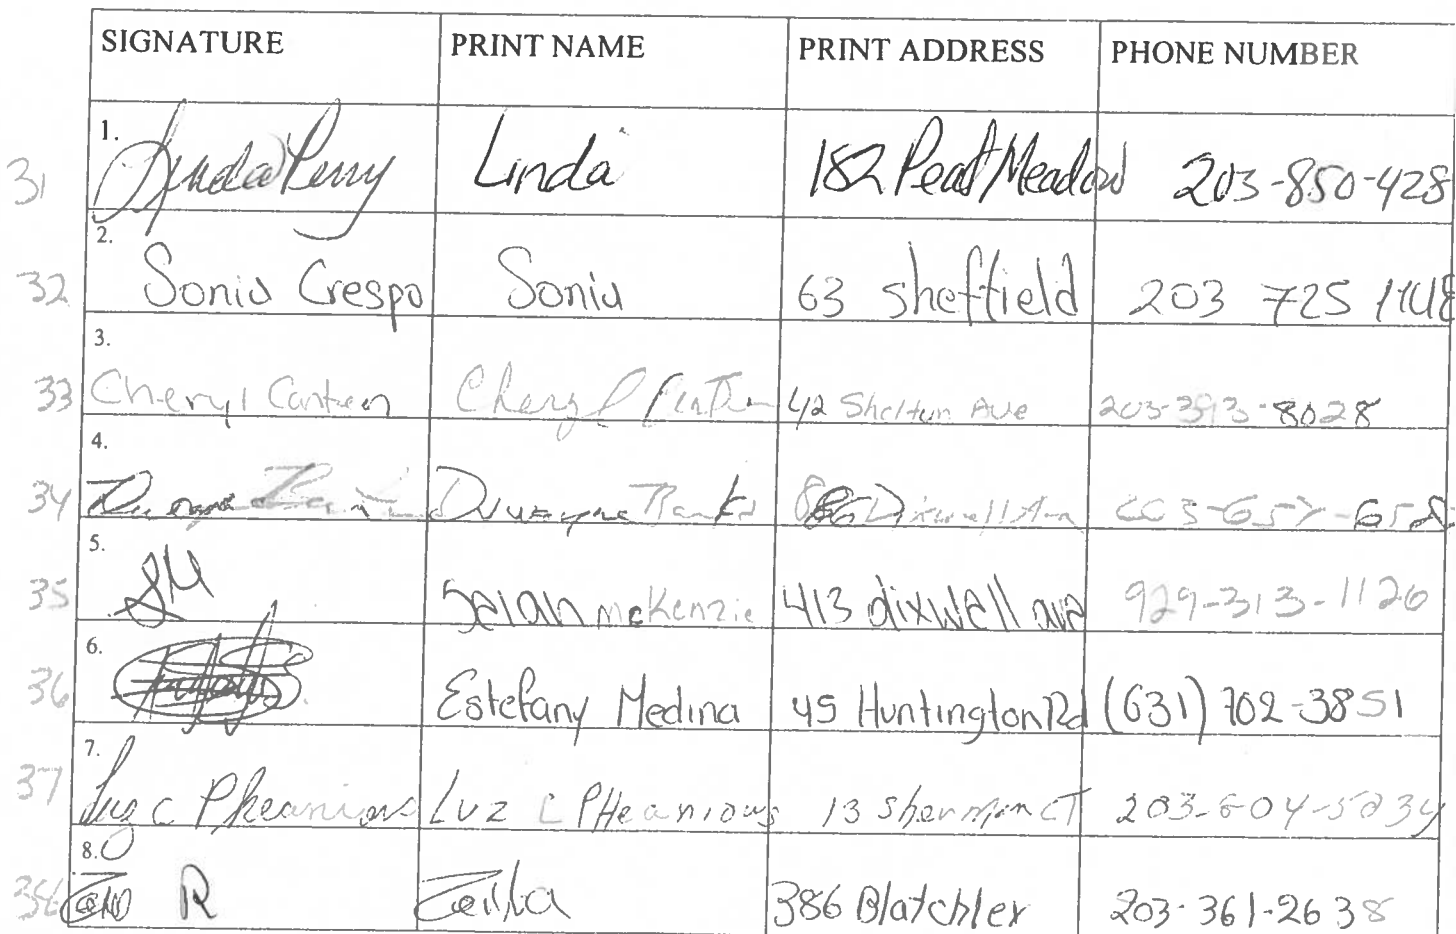 SIGNATURE PRINT NAME PRINT ADDRESS PHONE NUMBER
31 1. Linda Perry Linda 182 Peat Meadow 203-850-428
32 2. Sonia Crespo Sonia 63 Sheffield 203 725 1148
33 3. Cheryl Canteen Cheryl 42 Shelton Ave 203-393-8028
34 4. Dwayne
35 5. SM McKenzie 413 dixwell ave 929-313-1120
36 6. Estefany Medina 45 Huntington Rd (631) 702-3851
37 7. Luz C Pheanious Luz C PHeanious 13 Sherman CT 203-604-5034
38 8. R 386 Blatchley 203-361-2638